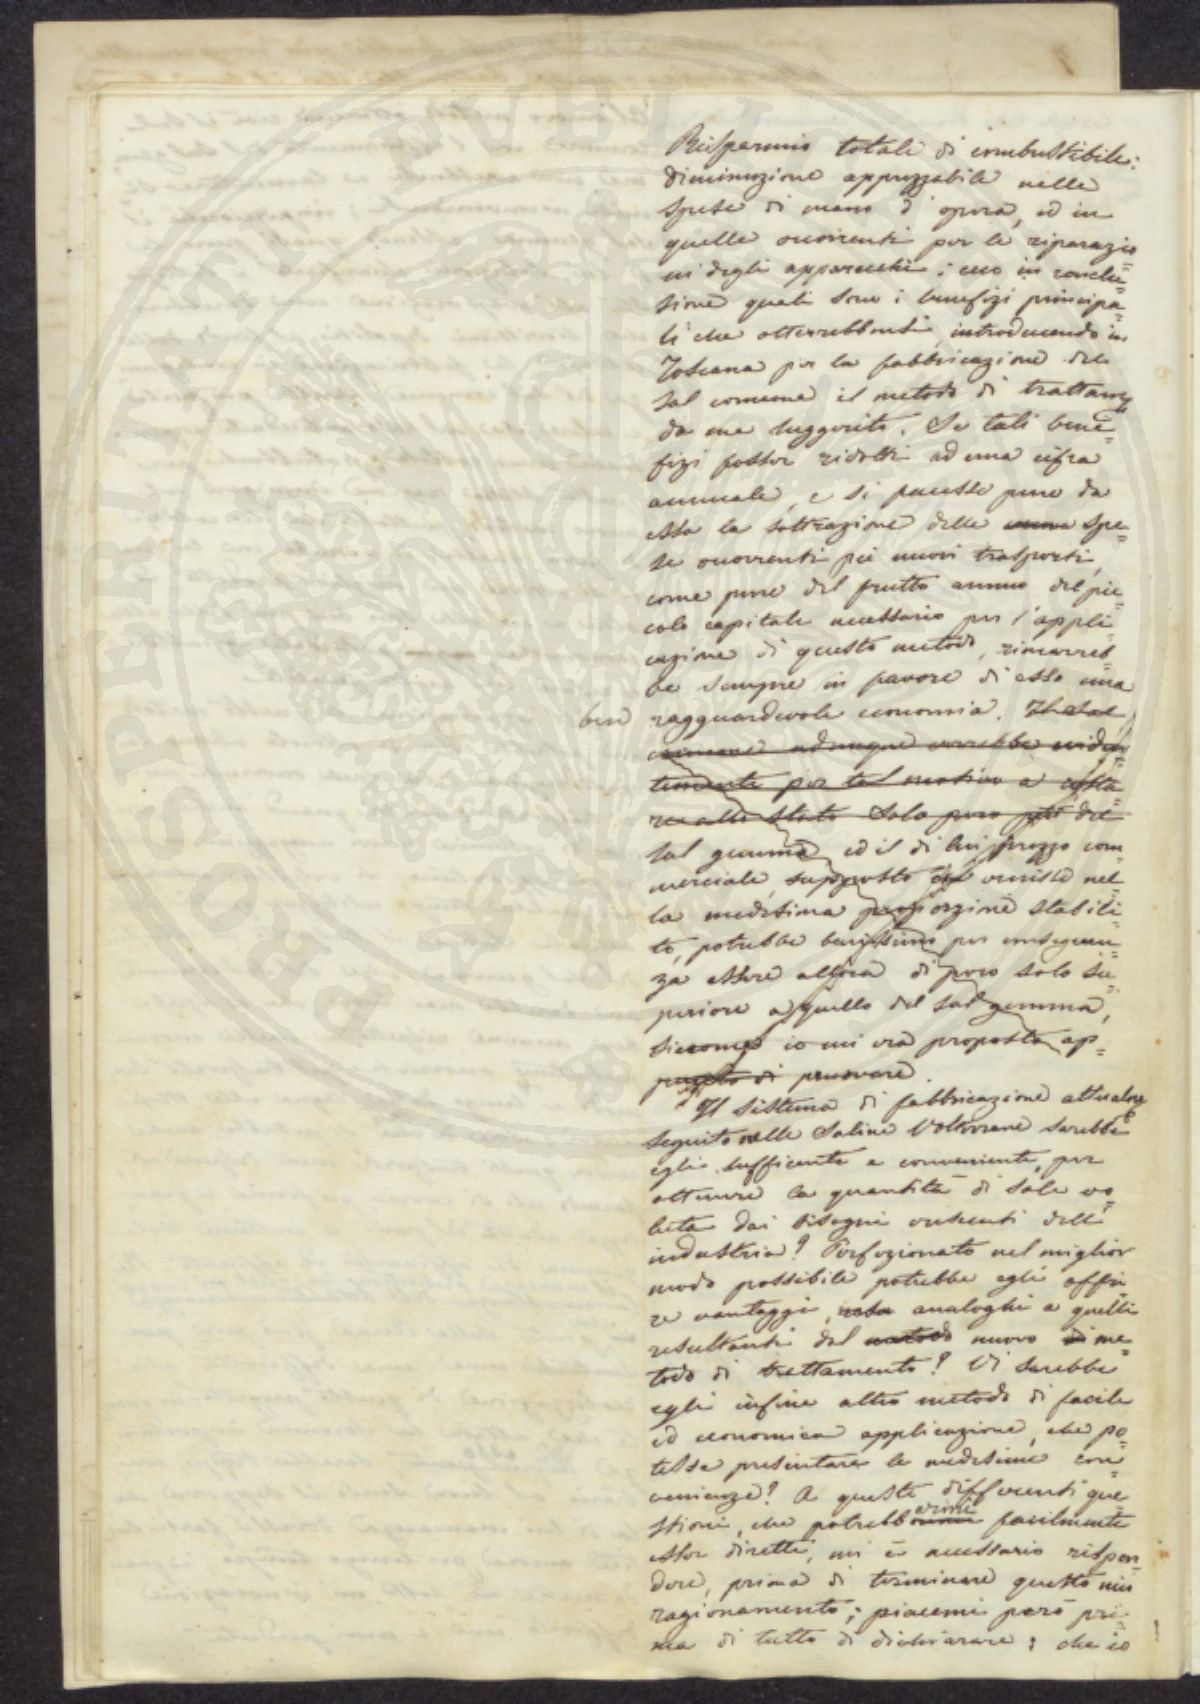 Risparmio totale di combustibile:
diminuzione apprezzabile nelle
spese di mano d'opera, ed in
quelle occorrenti per le riparazio=
ni degli apparecchi; ecco in conclu=
sione quali sono i benefizi principa=
li che otterrebbonsi, introducendo in
Toscana per la fabbricazione del
sal comune il metodo di trattam.
da me suggerito. Se tali bene=
fizi fosser ridotti ad una cifra
annuale, e si facesse pure da
essa la sottrazione delle nuove spe=
se occorrenti pei nuovi trasporti,
come pure del frutto annuo del pic=
colo capitale necessario per l'appli=
cazione di questo metodo, rimarreb=
be sempre in favore di esso una
ben ragguardevole economia. Il sal
comune adunque verrebbe eviden=
temente per tal motivo a costa=
re allo Stato solo poco più del
sal gemma, ed il di lui prezzo com=
merciale, supposto che venisse nel=
la medesima proporzione stabili=
to, potrebbe benissimo per conseguen=
za essere allora di poco solo su=
periore a quello del sal gemma,
siccome io mi era proposto ap=
punto di provare.
Il sistema di fabbricazione attualm.e
seguito nelle Saline Volterrane sarebbe
egli sufficente e conveniente, per
ottenere la quantità di sale vo=
luta dai bisogni crescenti dell'
industria? Perfezionato nel miglior
modo possibile potrebbe egli offri=
re vantaggi, analoghi a quelli
resultanti dal metodo nuovo di me=
todo di trattamento? Vi sarebbe
egli infine altro metodo di facile
ed economica applicazione, che po=
tesse presentare le medesime con=
venienze? A queste differenti que=
stioni, che potrebbero facilmente
esser dirette, mi è necessario rispon=
dere, prima di terminare questo mio
ragionamento; piacemi però pri=
ma di tutto di dichiarare; che io
PROSPERITATI PVBLICAE